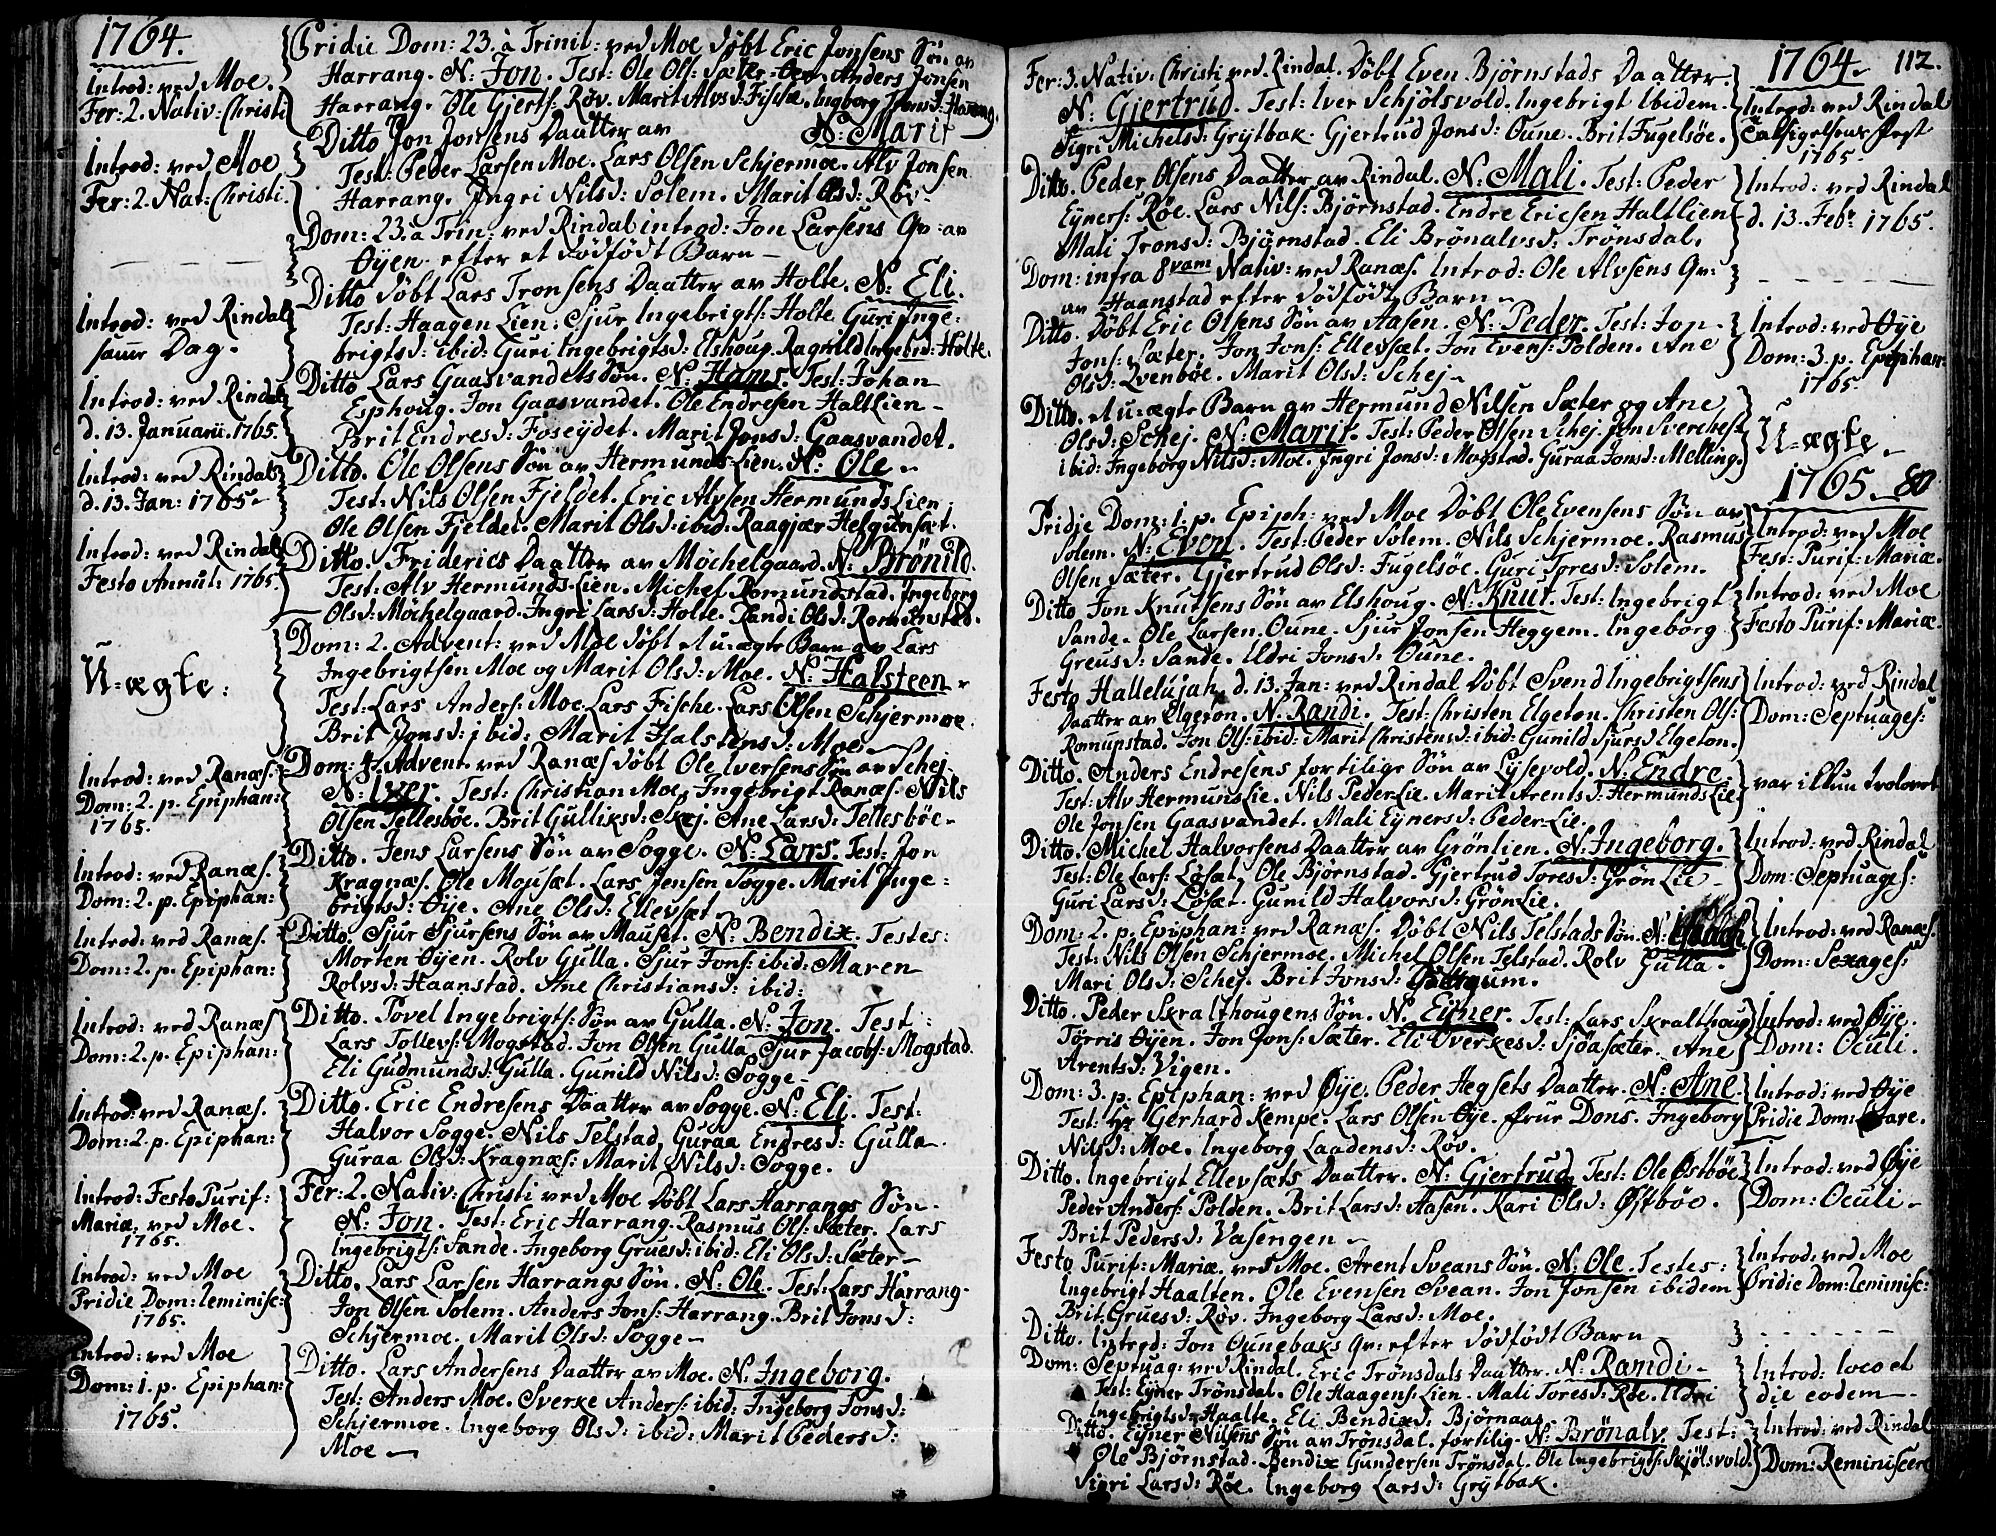 1764.
Introd: ved Moe.
Fer: 2. Nativ: Christi
Introd: ved Moe
Fer: 2. Nat: Christi.
Introd: ved Rindal
samme Dag.
Introd: ved Rindal
d. 13. Januarii. 1765.
Introd: ved Rindal
d. 13. Jan: 1765.
Introd: ved Rindal
Festo Annut: 1765.
U-ægte:
Introd: ved Ranæs.
Dom: 2. p. Epiphan:
1765.
Introd: ved Ranæs.
Dom: 2. p. Epiphan:
Introd: ved Ranæs.
Dom: 2. p. Epiphan:
Introd: ved Ranæs
Dom: 2. p. Epiphan:
Introd: ved Ranæs.
Dom: 2. p. Epiphan:
Introd: Festo Purif:
Mariæ, ved Moe.
1765.
Introd: ved Moe
Pridie Dom: Reminisc:
1765.
Introd: ved Moe
Dom: 1. p. Epiphan:
1765.
Pridie Dom: 23. à Trinit: ved Moe döbt Eric Jonsens Sön av
Harrang. N: Jon. Test: Ole Ols: Sæter. Anders Jonsen
Harrang. Ole Gjerts: Röv. Marit Alvsd: Fische. Ingeborg Jonsd: Harang.
Ditto Jon Jonsens Daatter av N: Marit
Test: Peder Larsen Moe. Lars Olsen Schjermoe. Alv Jonsen
Harrang. Ingri Nilsd: Solem. Marit Olsd: Röv.
Dom: 23. à Trin: ved Rindal introd: Jon Larsens Qv: av
Öyen. efter et dödfödt Barn
Ditto döbt Lars Tronsens Daatter av Holte. N: Eli.
Test: Haagen Lien. Sjur Ingebrigts: Holte. Guri Inge:
brigtsd: ibid: Guri Ingebrigtsd: Elshoup. Ragnild Ingebrd: Holte.
Ditto Lars Gaasvandets Sön. N: Hans. Test: Johan
Esphoug. Jon Gaasvandet. Ole Endresen Haltlien
Brit Endresd: Foseÿdet. Marit Jonsd: Gaasvandet.
Ditto. Ole Olsens Sön av Hermunds Lien. N: Ole
Test: Nils Olsen Fjeldet. Eric Alvsen Hermunds Lien
Ole Olsen Fjeldet. Marit Olsd: ibid: Raagjær Helgunsæt.
Ditto. Friderics Daatter av Möchelgaard. N: Brönild.
Test: Alv Hermunds Lien. Michel Romundstad. Ingeborg
Olsd: Möchelgaard. Ingri Larsd: Holte. Randi Olsd: Romunstad.
Dom: 2. Advent: ved Moe döbt et u-ægte Barn av Lars
Ingebrigtsen Moe og Marit Olsd: Moe. N: Halsteen
Test: Lars Anders: Moe. Lars Fische. Lars Olsen Schjermoe.
Brit Jonsd: ibid: Marit Halstensd: Moe
Dom: 4. Advent. ved Ranæs döbt Ole Iversens Sön av Schej
N: Iver. Test: Christian Moe. Ingebrigt Ranæs. Nils
Olsen Tellesböe. Brit Gulliksd: Skej. Ane Larsd: Tellesböe
Ditto. Jens Larsens Sön av Sogge. N: Lars. Test: Jon
Kragnæs. Ole Mousæt. Lars Jensen Sogge. Marit Inge:
brigtsd: Öye. Ane Olsd: Ellevsæt
Ditto. Sjur Sjursens Sön av Mauset. N: Bendix. Testes:
Morten Öyen. Rolv Gulla. Sjur Jons: ibid: Maren
Rolvsd: Haanstad. Ane Christiansd: ibid:
Ditto. Povel Ingebrigts: Sön av Gulla. N: Jon. Test:
Lars Tollevs: Mogstad. Jon Olsen Gulla. Sjur Jacobs: Mogstad.
Eli Gudmundsd: Gulla. Gunild Nilsd: Sogge
Ditto. Eric Endresens Daatter av Sogge. N: Eli. Test:
Halvor Sogge. Nils Telstad. Guraa Endresd: Gulla.
Guraa Olsd: Kragnæs: Marit Nilsd: Sogge.
Fer: 2. Nativ: Christi ved Moe Döbt Lars Harrangs Sön
N: Jon. Test: Eric Harrang. Rasmus Ols: Sæter. Lars
Ingebrigts: Sande. Ingeborg Gruesd: ibid: Eli Olsd: Sæter
Ditto. Lars Larsen Harrangs Sön. N: Ole. Test: Lars Harrang.
Jon Olsen Solem. Anders Jons: Harrang. Brit Jonsd:
Schjermoe. Marit Olsd: Sogge
Ditto. Lars Andersens Daatter av Moe. N: Ingeborg.
Test: Anders Moe. Sverke Anders: ibid: Ingeborg Jonsd:
Schjermoe. Ingeborg Olsd: ibid: Marit Pedersd:
Moe
Fer: 3. Nativ: Christi ved Rindal. Döbt Even Björnstads Daatter.
N: Gjertrud. Test: Iver Schjölsvold. Ingebrigt Ibidem.
Sigri Michelsd: Grÿtbak. Gjertrud Jonsd: Oune. Brit Fugelsöe.
Ditto. Peder Olsens Daatter av Rindal. N: Mali. Test: Peder
Eÿners: Röe. Lars Nils: Björnstad. Endre Ericsen Haltlien
Mali Tronsd: Björnstad. Eli Brönalvsd: Trönsdal.
Dom: infra 8vam Nativ: ved Ranæs. Introd: Ole Alvsens Qv:
av Haanstad efter dödfödt Barn
Ditto. Döbt Eric Olsens Sön av Aasen. N: Peder. Test: Jon
Jons: Sæter. Jon Jons: Ellevsæt. Jon Evens: Polden. Ane
Olsd: Qvenböe. Marit Olsd: Schej
Ditto. et u-ægte Barn av Hermund Nilsen Sæter og Ane
Olsd: Schej. N: Marit. Test: Peder Olsen Schej. Jon Sverches:
ibid: Ingeborg Nilsd: Moe. Ingri Jonsd: Mogstad. Guraa Jonsd: Melling.
Pridie Dom: 1. p. Epiph: ved Moe Döbt Ole Evensens Sön av
Solem. N: Even. Test: Peder Solem. Nils Schjermoe. Rasmus
Olsen Sæter. Gjertrud Olsd: Fugelsöe. Guri Toresd: Solem.
Ditto Jon Knutsens Sön av Elshoug. N: Knut. Test: Ingebrigt
Sande. Ole Larsen Oune. Sjur Jonsen Heggem. Ingeborg
Greusd: Sande. Eldri Jonsd: Oune.
Festo Hallelujah. d. 13. Jan: ved Rindal Döbt Svend Ingebrigtsens
Daatter av Elgeton. N: Randi. Test: Christen Elgeton. Christen Ols:
Romunstad. Jon Ols: ibid: Marit Christensd: ibid: Gunild Sjursd Elgeton.
Ditto. Anders Endresens fortilige Sön av Lÿsevold. N: Endre.
Test: Alv Hermuns Lie. Nils Peder Lie. Marit Arentsd: Hermunds Lie
Ole Jonsen Gaasvandet. Mali Eÿnersd: Peder-Lie.
Ditto. Michel Halvorsens Daatter av Grönlien. N: Ingeborg.
Test: Ole Lars: Lösæt. Ole Björnstad. Gjertrud Toresd: Grön Lie
Guri Larsd: Lösæt. Gunild Halvorsd: Grön Lie.
Dom: 2. p. Epiphan: ved Ranæs. Döbt Nils Telstads Sön. N:
Test: Nils Olsen Schjermoe. Michel Olsen Telstad. Rolv Gulla.
Mari Olsd: Schej. Brit Jonsd:
Ditto. Peder Skralthougens Sön. N: Eÿner. Test: Lars Skralthoug
Törris Öyen. Jon Jons: Sæter. Eli Sverkesd: Sjöasæter. Ane
Arentsd: Vigen.
Dom: 3. p. Epiphan: ved Öye. Peder Hegsets Daatter. N: Ane.
Test: Hr Gerhard Kempe. Lars Olsen Öye. frue Dons. Ingeborg
Nilsd: Moe. Ingeborg Laadensd: Röv.
Ditto. Ingebrigt Ellevsæts Daatter. N: Gjertrud. Test: Ole Östböe
Peder Anders: Polden. Brit Larsd: Aasen. Kari Olsd: Östböe.
Brit Pedersd: Vasengen
Festo Purif: Mariæ. ved Moe. Arent Sveans Sön. N: Ole. Testes:
Ingebrigt Haalten. Ole Evensen Svean. Jon Jonsen ibidem
Brit Gruesd: Röv. Ingeborg Larsd: Moe.
Ditto. Introd: Jon Ounebaks Qv: efter dödfödt Barn
Dom: Septuag: ved Rindal. Eric Trönsdals Daatter. N: Randi
Test: Eÿner Trönsdal. Ole Haagens: Lien. Mali Toresd: Röe. Eldri
Ingebrigtsd: Haalte. Eli Bendixd: Björnaas
Ditto. Eÿner Nilsens Sön av Trönsdal. fortilig. N: Brönalv. Test:
Ole Björnstad. Bendix Gundersen Trönsdal. Ole Ingebrigts: Skjölsvold.
Sigri Larsd: Röe. Ingeborg Larsd: Grÿtbak.
1764. 112.
Introd: ved Rindal
1765.
Introd: ved Rindal
d. 13. Febr 1765.
Introd: ved Öye
Dom: 3. p. Epiphan:
1765
U-ægte
1765. 80
Introd: ved Moe
Fest: Purif: Mariæ.
Introd: ved Moe
Festo Purif: Mariæ
Introd: ved Rindal
Dom: Septuages:
var illum
Introd: ved Rindal
Dom: Septuages:
Introd: ved Ranæs.
Dom: Sexages:
Introd: ved Öye.
Dom: Oculi.
Introd: ved Öye
Pridie Dom:
Introd: ved Öye
Dom: Oculi
Introd: ved Moe
Pridie Dom: Reminisc:
Introd: loco et
die eodem
Introd: ved Rindal
Dom: Reminiscere